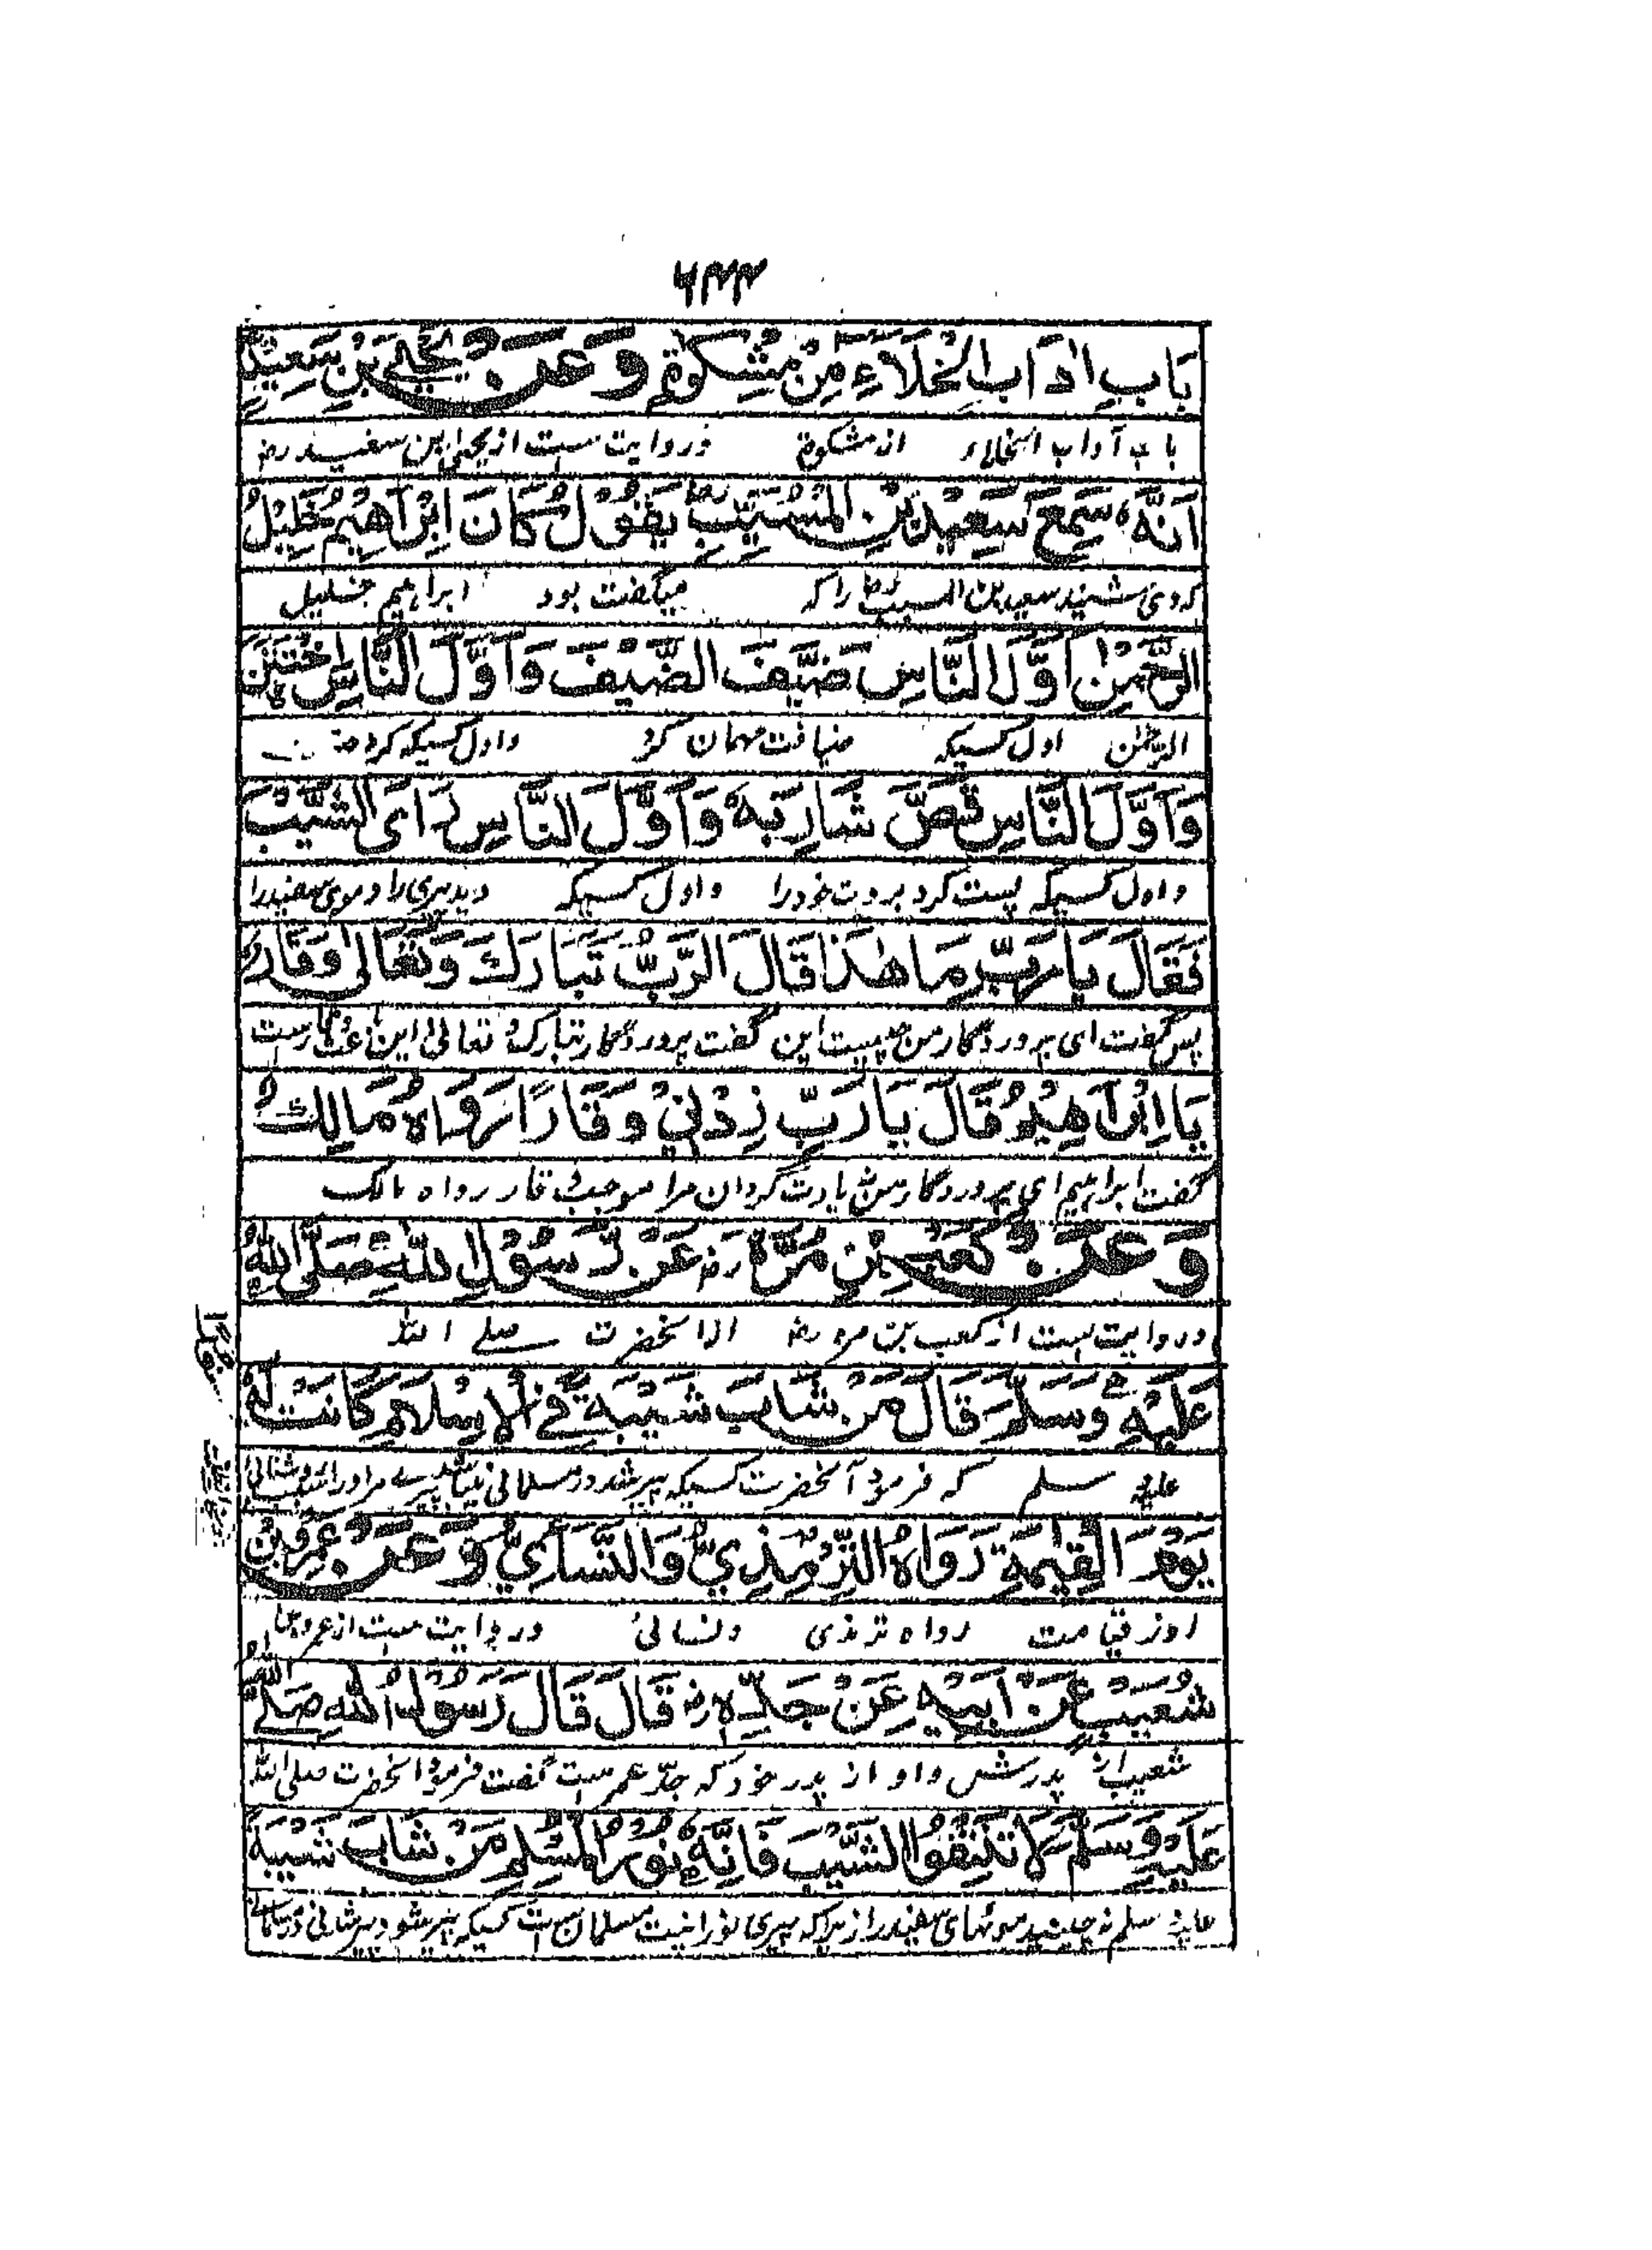 ۶۲۲
بَابِ اٰدَابِ الْخَلَاءِ مِنْ مِشْكٰوةِ وَعَنْ يَحْيَى بْنِ سَعِيْدٍ
باب آداب الخلاء از مشکوة و روایت ست از یحیی بن سعید رض
اَنَّهٗ سَمِعَ سَعِيْدَ بْنَ الْمُسَيِّبِ رض يَقُوْلُ كَانَ اِبْرَاهِيْمُ خَلِيْلُ
که وی شنید سعید بن المسیب رض را که میگفت بود ابراهیم خلیل
الرَّحْمٰنِ اَوَّلَ النَّاسِ ضَيَّفَ الضَّيْفَ وَاَوَّلَ النَّاسِ اخْتَتَنَ
الرحمن اول کسیکه ضیافت مهمان کرد و اول کسیکه کرد
وَاَوَّلَ النَّاسِ قَصَّ شَارِبَهٗ وَاَوَّلَ النَّاسِ رَاَى الشَّيْبَ
و اول کسیکه پست کرد بروت خود را و اول کسیکه دید پیری را و موی سفید را
فَقَالَ يَا رَبِّ مَا هٰذَا قَالَ الرَّبُّ تَبَارَكَ وَتَعَالٰى وَقَارٌ
پس گفت ای پروردگار من چیست این گفت پروردگار تبارک و تعالی این وقارست
يَا اِبْرَاهِيْمُ قَالَ يَا رَبِّ زِدْنِيْ وَقَارًا رَوَاهُ مَالِكٌ
گفت ابراهیم ای پروردگار من زیادت گردان مرا موجب وقار رواه مالک
وَعَنْ كَعْبِ بْنِ مُرَّةَ رض عَنْ رَسُوْلِ اللّٰهِ صَلَّى اللّٰهُ
و روایت ست از کعب بن مره رض از آنحضرت صلے الله
عَلَيْهِ وَسَلَّمَ قَالَ مَنْ شَابَ شَيْبَةً فِي الْاِسْلَامِ كَانَتْ لَهٗ
علیه سلم که فرمود آنحضرت کسیکه پیر شد در مسلمانی
يَوْمَ الْقِيٰمَةِ رَوَاهُ التِّرْمِذِيُّ وَالنَّسَائِيُّ وَعَنْ عَمْرِو بْنِ
روز قیامت رواه ترمذی و نسائی و روایت ست از عمرو بن
شُعَيْبٍ عَنْ اَبِيْهِ عَنْ جَدِّهٖ رض قَالَ قَالَ رَسُوْلُ اللّٰهِ صَلَّى اللّٰهُ
شعیب از پدرش و او از پدر خود که جد عمرست گفت فرمود آنحضرت صلی الله
عَلَيْهِ وَسَلَّمَ لَا تَنْتِفُوا الشَّيْبَ فَاِنَّهٗ نُوْرُ الْمُسْلِمِ مَنْ شَابَ شَيْبَةً
علیه سلم نه چینید موئهای سفید را زیراکه پیری نورانیت مسلمان ست کسیکه پیر شود